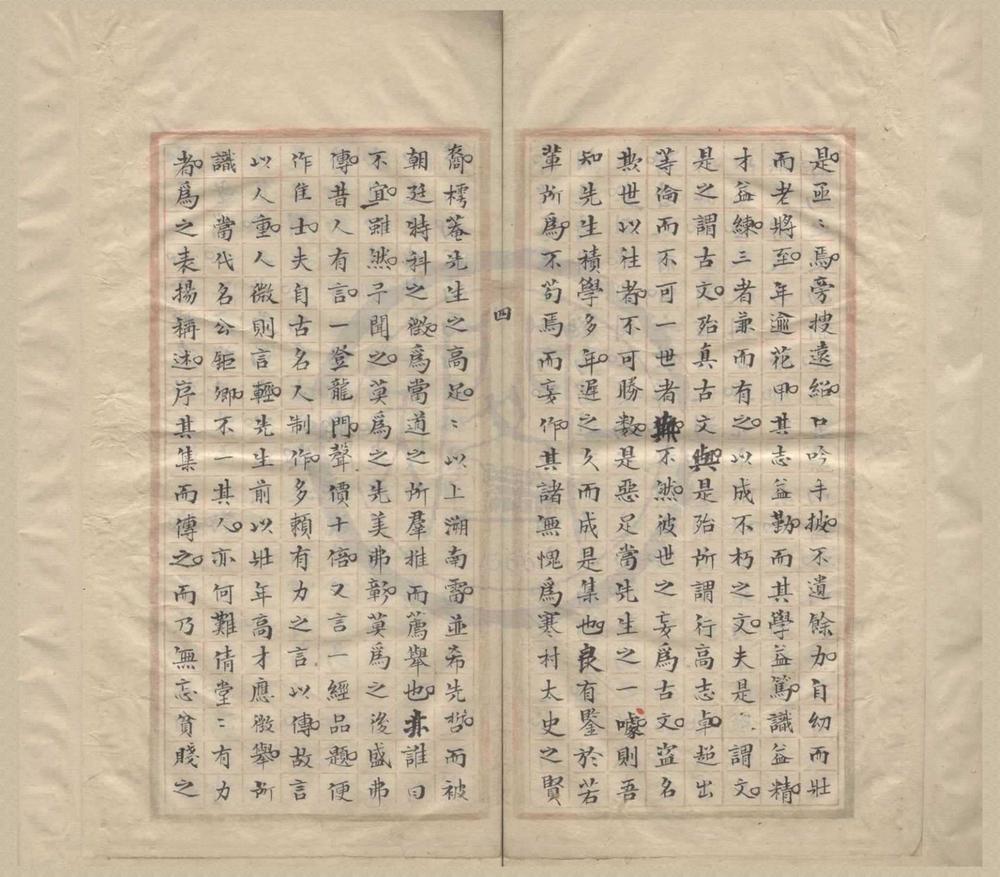 是亟〻焉旁搜遠紹口吟手披不遺餘力加自幼而壯
而老將至年逾花甲其志益勤而其學益篤識益精
才益練三者兼而有之以成不朽之文夫是謂文
是之謂古文殆真古文與是殆所謂行高志卓超出
等倫而不可一世者歟不然彼世之妄爲古文盜名
欺世以往者不可勝數是惡足當先生之一噱則吾
知先生積學多年遲之久而成是集也良有鑒於若
輩所爲不苟焉而妄作其諸無愧爲寒村太史之賢
四
裔樗菴先生之高足〻以上溯南雷並希先哲而被
朝廷特科之徵爲當道之所羣推而薦舉也亦誰曰
不宜雖然予聞之莫爲之先美弗彰莫爲之後盛弗
傳昔人有言一登龍門聲價十倍又言一經品題便
作佳士夫自古名人制作多賴有力之言以傳故言
以人重人微則言輕先生前以壯年高才應徵舉所
識當代名公鉅卿不一其人亦何難倩堂〻有力
者爲之表揚稱述序其集而傳之而乃無忘貧賤之